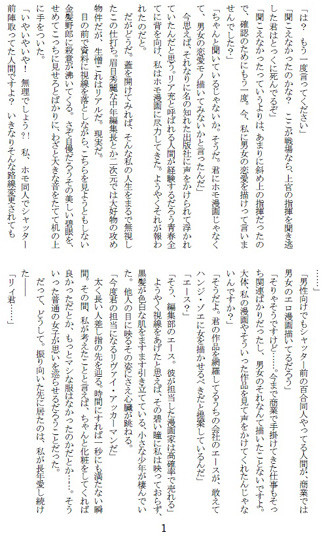 「は？　もう一度言ってください」
「聞こえなかったのかな？　ここが戦場なら、上官の指揮を聞き逃
した君はとっくに死んでるぞ」
「聞こえなかったっていうよりは、あまりに斜め上の指揮だったの
で、確認のためにもう一度。今、私に男女の恋愛を描けって言いま
せんでした？」
「ちゃんと聞いているじゃないか。そうだ。君にホモ漫画じゃなく
て、男女の恋愛モノ描いてみないかと言ったんだ」
今思えば、それなりに名の知れた出版社に声をかけられて浮かれ
ていたんだと思う。リア充と呼ばれる人間が経験するだろう青春全
てに背を向け、私はホモ漫画に尽力してきた。ようやくそれが報わ
れたのだと。
だがどうだ。蓋を開けてみれば、そんな私の人生をまるで無視し
たこの仕打ち。眉目秀麗な中年編集長とか二次元では大好物の攻め
物件だが、生憎これはリアルだ。現実だ。
目の前で資料に視線を落としながら、こちらを見ようともしない
金髪野郎に殺意が沸いてくる。さぞ自慢だろうその美しい碧眼を、
せめてこっちに見せろとばかりに、わざと大きな音をたてて机の上
に手をついた。
「いやいやいや！　無理でしょう！　私、ホモ同人でシャッター
前陣取ってた人間ですよ？　いきなりそんな路線変更されても
……」
「男性向けでもシャッター前の百合同人やってる人間が、商業では
男女のエロ漫画描いてるだろう」
「そりゃそうですけど……。今まで商業で手掛けてきた仕事もそっ
ち関連ばかりだったし、男女のそれなんて描いたことないですよ。
大体、私の漫画やそういった作品を見て声をかけてくれたんじゃな
いんですか？」
「そうだよ。君の作品を網羅してるうちの会社のエースが、敢えて
ハンジ・ゾエに女を描かせるべきだと提案しているんだ」
「エース？」
「そう、編集部のエース。彼が担当した漫画家は高確率で売れる」
ようやく視線をあげたと思えば、その碧い瞳に私は映っておらず、
黒髪が色白な肌をますます引き立てている、小さな少年が棲んでい
た。他人の目に映るその姿にさえ心臓が跳ねる。
「今度君の担当になるリヴァイ・アッカーマンだ」
太く長い人差し指の先を辿る。時間にすれば一秒にも満たない瞬
間。その間、私が考えたことと言えば、ちゃんと化粧をしてくれば
良かっただのとか、もっとマシな服はなかったのだとか……。そう
いった普通の女子が思いを巡らせるだろうことだった。
だって、どうして。振り向いた先に居たのは、私が長年愛し続け
た――
「リィ君……」
1